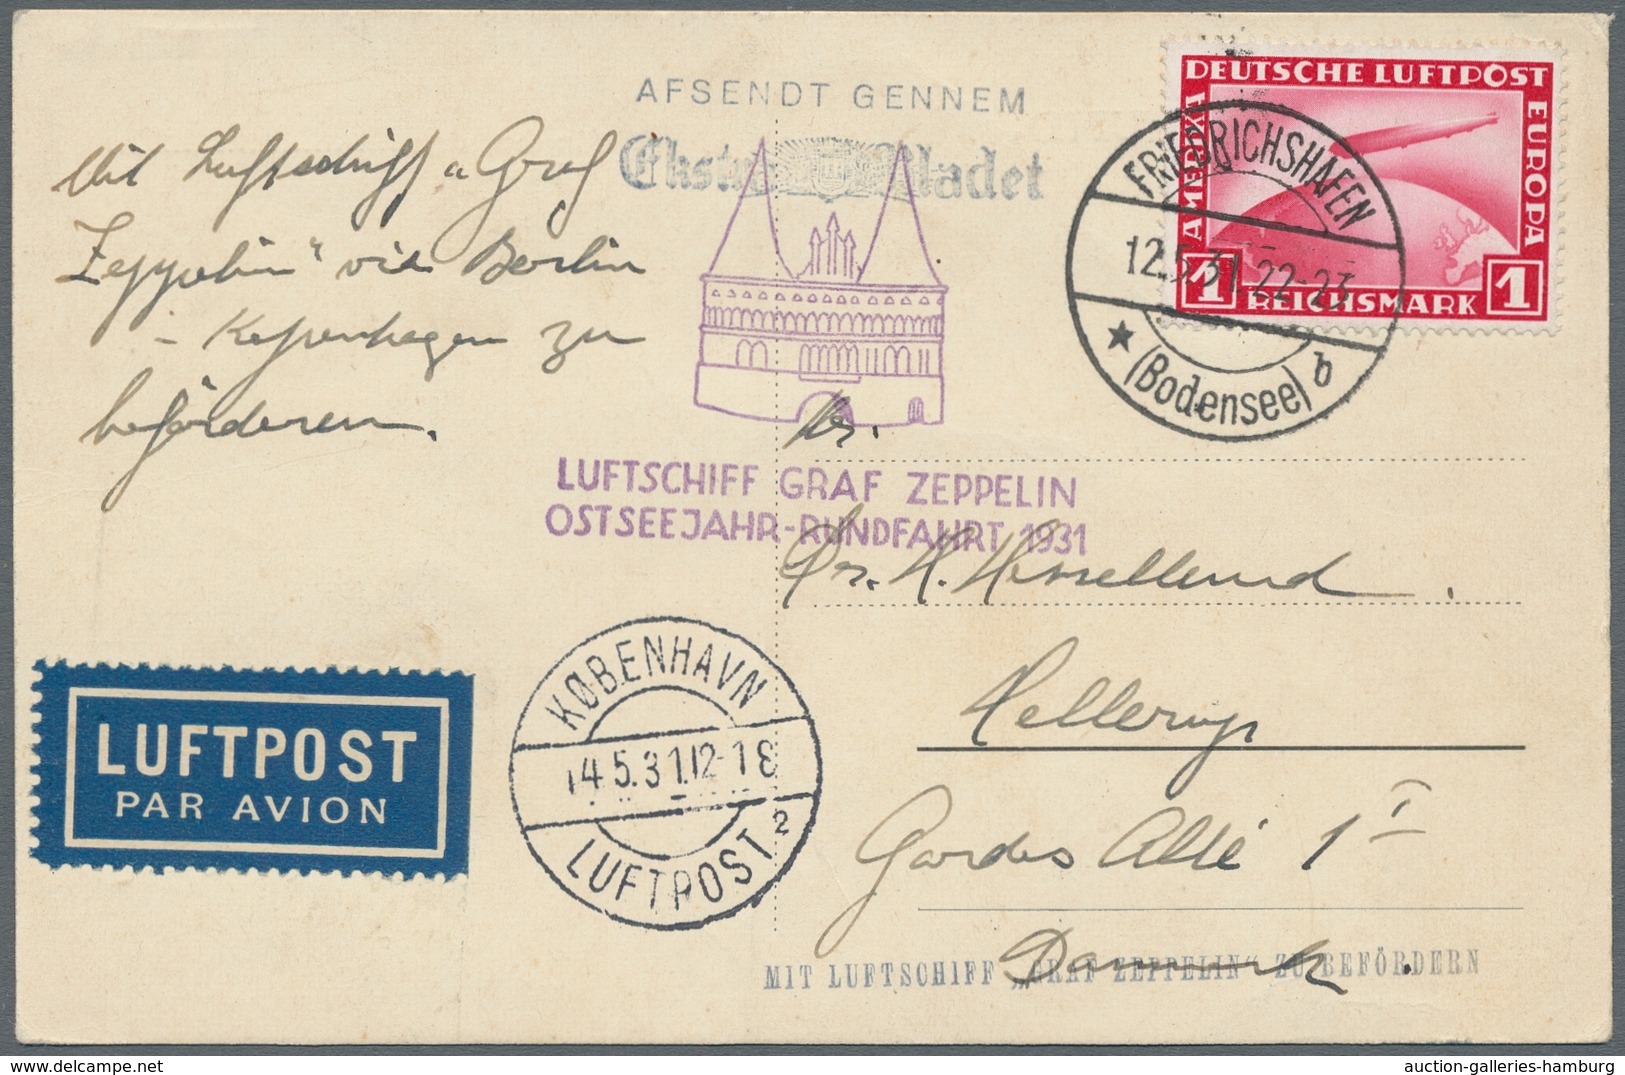 AFSENDT GENNEM
Ekstra Bladet
Mit Luftschiff „Graf
Zeppelin“ via Berlin
- Kopenhagen zu
befördern.
DEUTSCHE LUFTPOST
EUROPA
AMERIKA
1 REICHSMARK 1
FRIEDRICHSHAFEN
12.5.31.22-23
★ (Bodensee) b
Hr.
LUFTSCHIFF GRAF ZEPPELIN
OSTSEEJAHR-RUNDFAHRT 1931
Dr. H.
Hellerup
KØBENHAVN
14.5.31.12-18
LUFTPOST 2
LUFTPOST
PAR AVION
Gardes Allé 1 I
Danmark.
MIT LUFTSCHIFF „GRAF ZEPPELIN“ ZU BEFÖRDERN
auction-galleries-hamburg